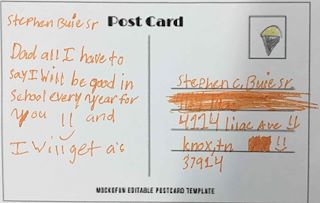 Stephen Buie Sr
Post Card
Dad all I have to
say I will be good in
school every year for
you !! and
I will get a's
Stephen C, Buie Sr
4114 lilac Ave !!
knox, tn !!
37914
MOCKOFUN EDITABLE POSTCARD TEMPLATE